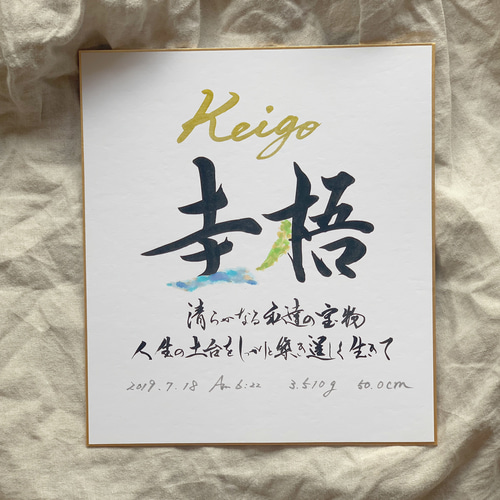 Keigo
圭梧
清らかなる私達の宝物
人生の土台をしっかりと築き逞しく生きて
2019.7.18 Am 6:22 3.510g 50.0cm